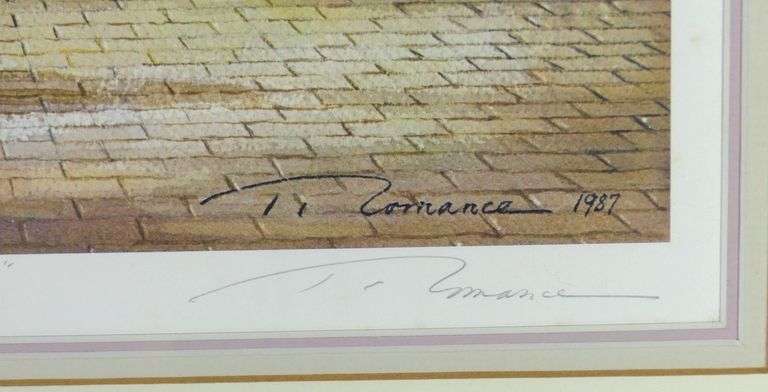 T. Romance 1987
T. Romance